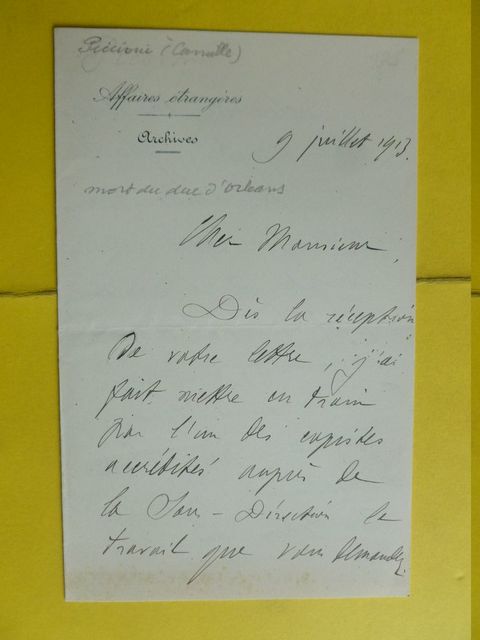 Piccioni (Camille)
Affaires étrangères
Archives
9 juillet 1913.
mort du duc d'Orléans
Cher Monsieur,
Dès la réception
de votre lettre, j'ai
fait mettre en train
par l'un des copistes
accrédités auprès de
la Sous-Direction le
travail que vous demandez